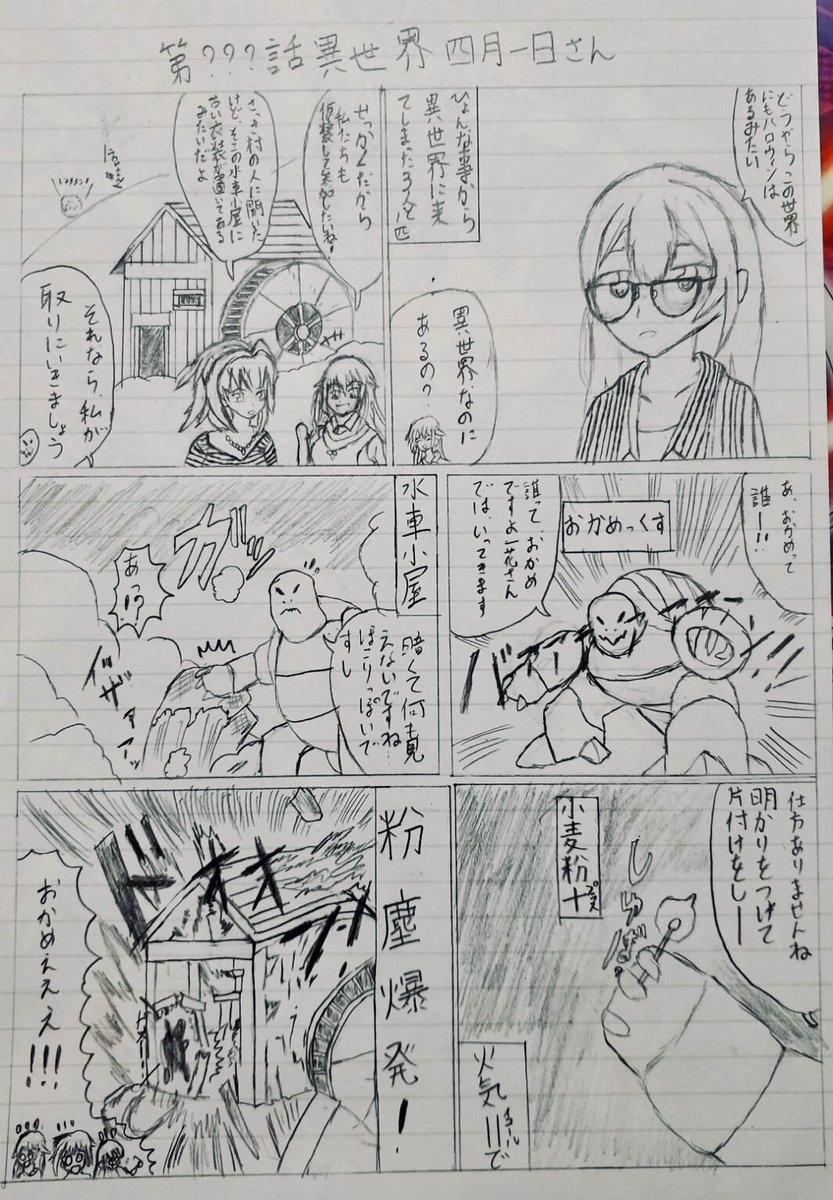 第???話異世界四月一日さん
どうやらこの世界
にもハロウィンは
あるみたい
ひょんな事から
異世界に来
てしまった3人と一匹
異世界なのに
あるの?
せっかくだから
私たちも
仮装して参加したいね!
さっき村の人に聞いた
けど、そこの水車小屋に
古い衣装が置いてある
みたいだよ
それなら、私が
取りにいきましょう
あ、おかめって
誰ー!!
おかめっくす
誰って、おかめ
ですよ一花さん
では、いってきます
バーン
水車小屋
暗くて何も見
えないですね…
ほこりっぽいで
すし
ガッ
あっ!?
ザァァーッ
仕方ありませんね
明かりをつけて
片付けをしー
小麦粉+
プラス
しゅぼっ
火気=で
イコール
粉塵爆発!
ドオオン
おかめぇぇぇ!!!